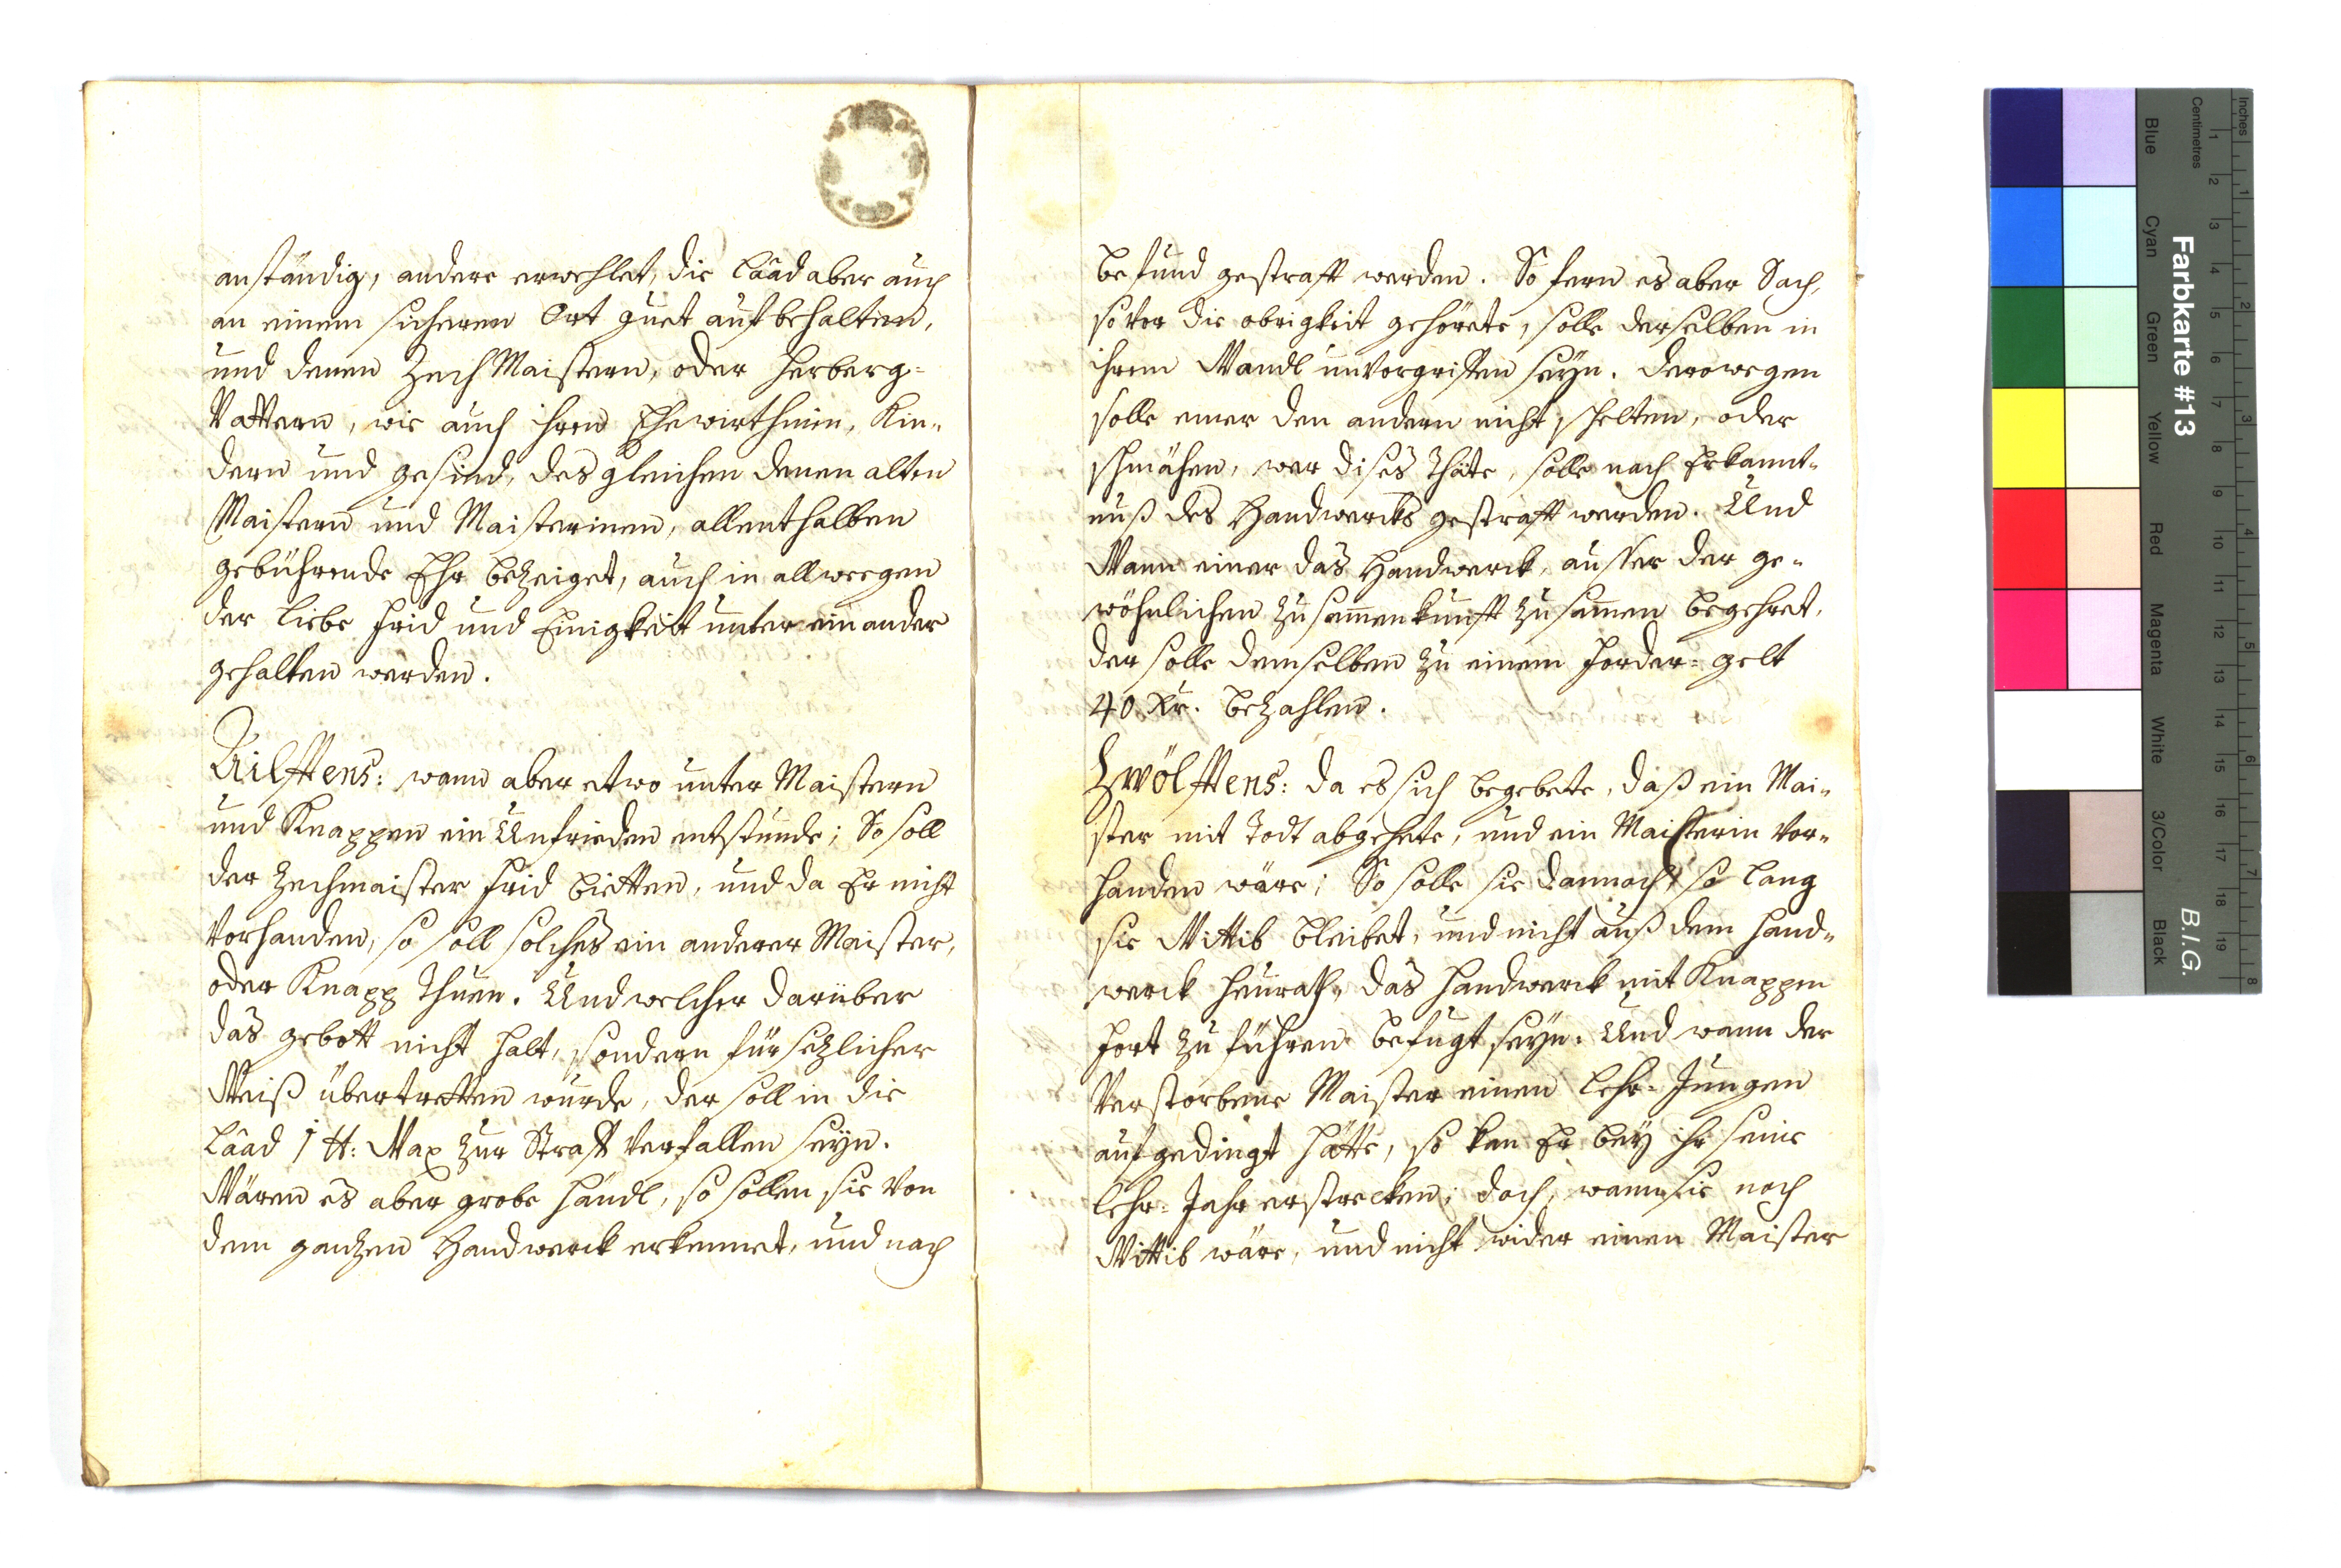 anständig, andere erwehlet, die Lâad aber auch
an einem sicheren Ort guet aufbehalten,
und denen Zech Maistern, oder Herberg-
Vattern, wie auch ihren Ehewirthinen, Kin-
dern und gesind, desgleichen denen alten
Maistern und Maisterinen, allenthalben
gebührende Ehr bezeiget, auch in allweegen
der liebe Frid und Einigkeit unter einander
gehalten werden.
Ailfftens: wann aber etwo unter Maistern
und Knappen ein Unfrieden entstunde; So soll
der Zechmaister Frid bietten, und da Er nicht
vorhanden, so soll solches ein anderer Maister,
oder Knapp Thuen. Und welcher darüber
das gebott nicht halt, sondern fürsezlicher
Weiß übertretten wurde, der soll in die
Lâad 1 ℔: Wax zur Straff verfallen seyn.
Wären es aber grobe händl, so sollen sie von
dem ganzen Handwerck erkennet, und nach
befund gestrafft werden. So fern es aber Sach,
so vor die obrigkeit gehörete, solle derselben in
ihrem Wandl unvorgriffen seyn. Derowegen
solle einer den andern nicht schelten, oder
schmähen, wer dises Thäte, solle nach Erkannt-
nuß des Handwercks gestrafft werden. Und
Wann einer das Handwerck, ausser der ge-
wöhnlichen zusam̄enkunfft zusam̄en begehret,
der solle demselben zu einem Forder-gelt
40 Xr. bezahlen.
Zwölfftens: da es sich begebete, daß ein Mai-
ster mit Todt abgehete, und ein Maisterin vor-
handen wäre; So solle sie dannoch, so lang
sie Wittib bleibet, und nicht auß dem Hand-
werck heurath, das Handwerck mit Knappen
fort zu führen befugt seyn. Und wann der
Verstorbene Maister einen Lehr-Jungen
aufgedingt hätte, so kan Er bey ihr seine
Lehr-Jahr erstrecken; doch, wann sie noch
Wittib wäre, und nicht wider einen Maister
Farbkarte #13
B.I.G.
Blue
Cyan
Green
Yellow
Red
Magenta
White
3/Color
Black
Centimetres
1
2
3
4
5
6
7
8
9
10
11
12
13
14
15
16
17
18
19
Inches
1
2
3
4
5
6
7
8